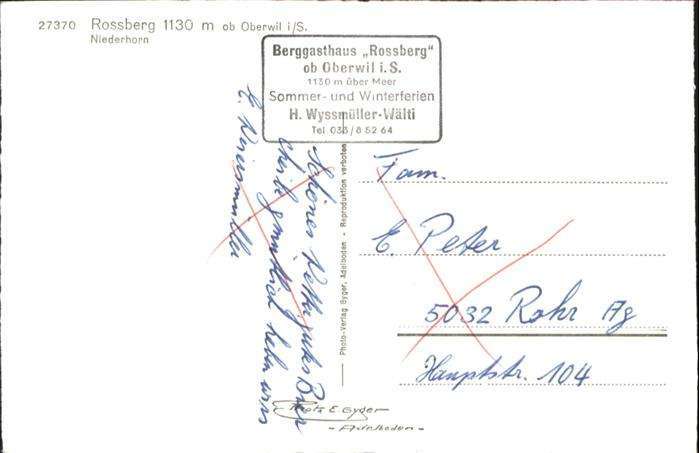 27370 Rossberg 1130 m ob Oberwil i/S.
Niederhorn
Berggasthaus „Rossberg"
ob Oberwil i. S.
1130 m über Meer
Sommer- und Winterferien
H. Wyssmüller-Wälti
Tel 033/8 52 64
Schönes Wetter, gutes Bier
haben wir
E.
Photo-Verlag Gyger, Adelboden - Reproduktion verboten
Fam.
E. Peter
5032 Rohr Ag
Hauptstr. 104
Photo E Gyger
- Adelboden -